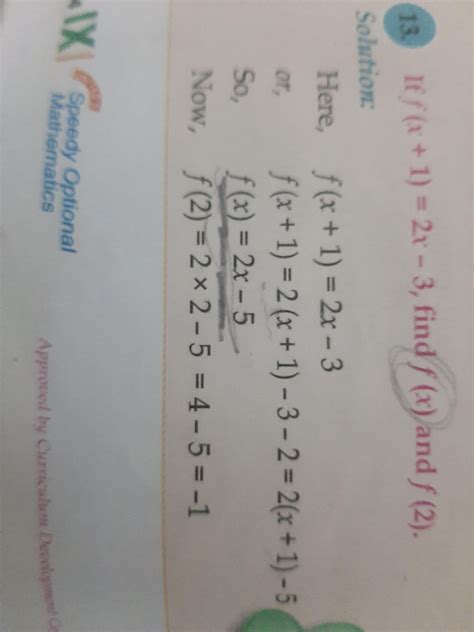 13. If f (x + 1) = 2x – 3, find f (x) and f (2).
Solution:
Here, f (x + 1) = 2x – 3
or, f (x + 1) = 2 (x + 1) – 3 – 2 = 2(x + 1) – 5
So, f (x) = 2x – 5
Now, f (2) = 2 × 2 – 5 = 4 – 5 = –1
IX
Speedy Optional
Mathematics
Approved by Curriculum Development